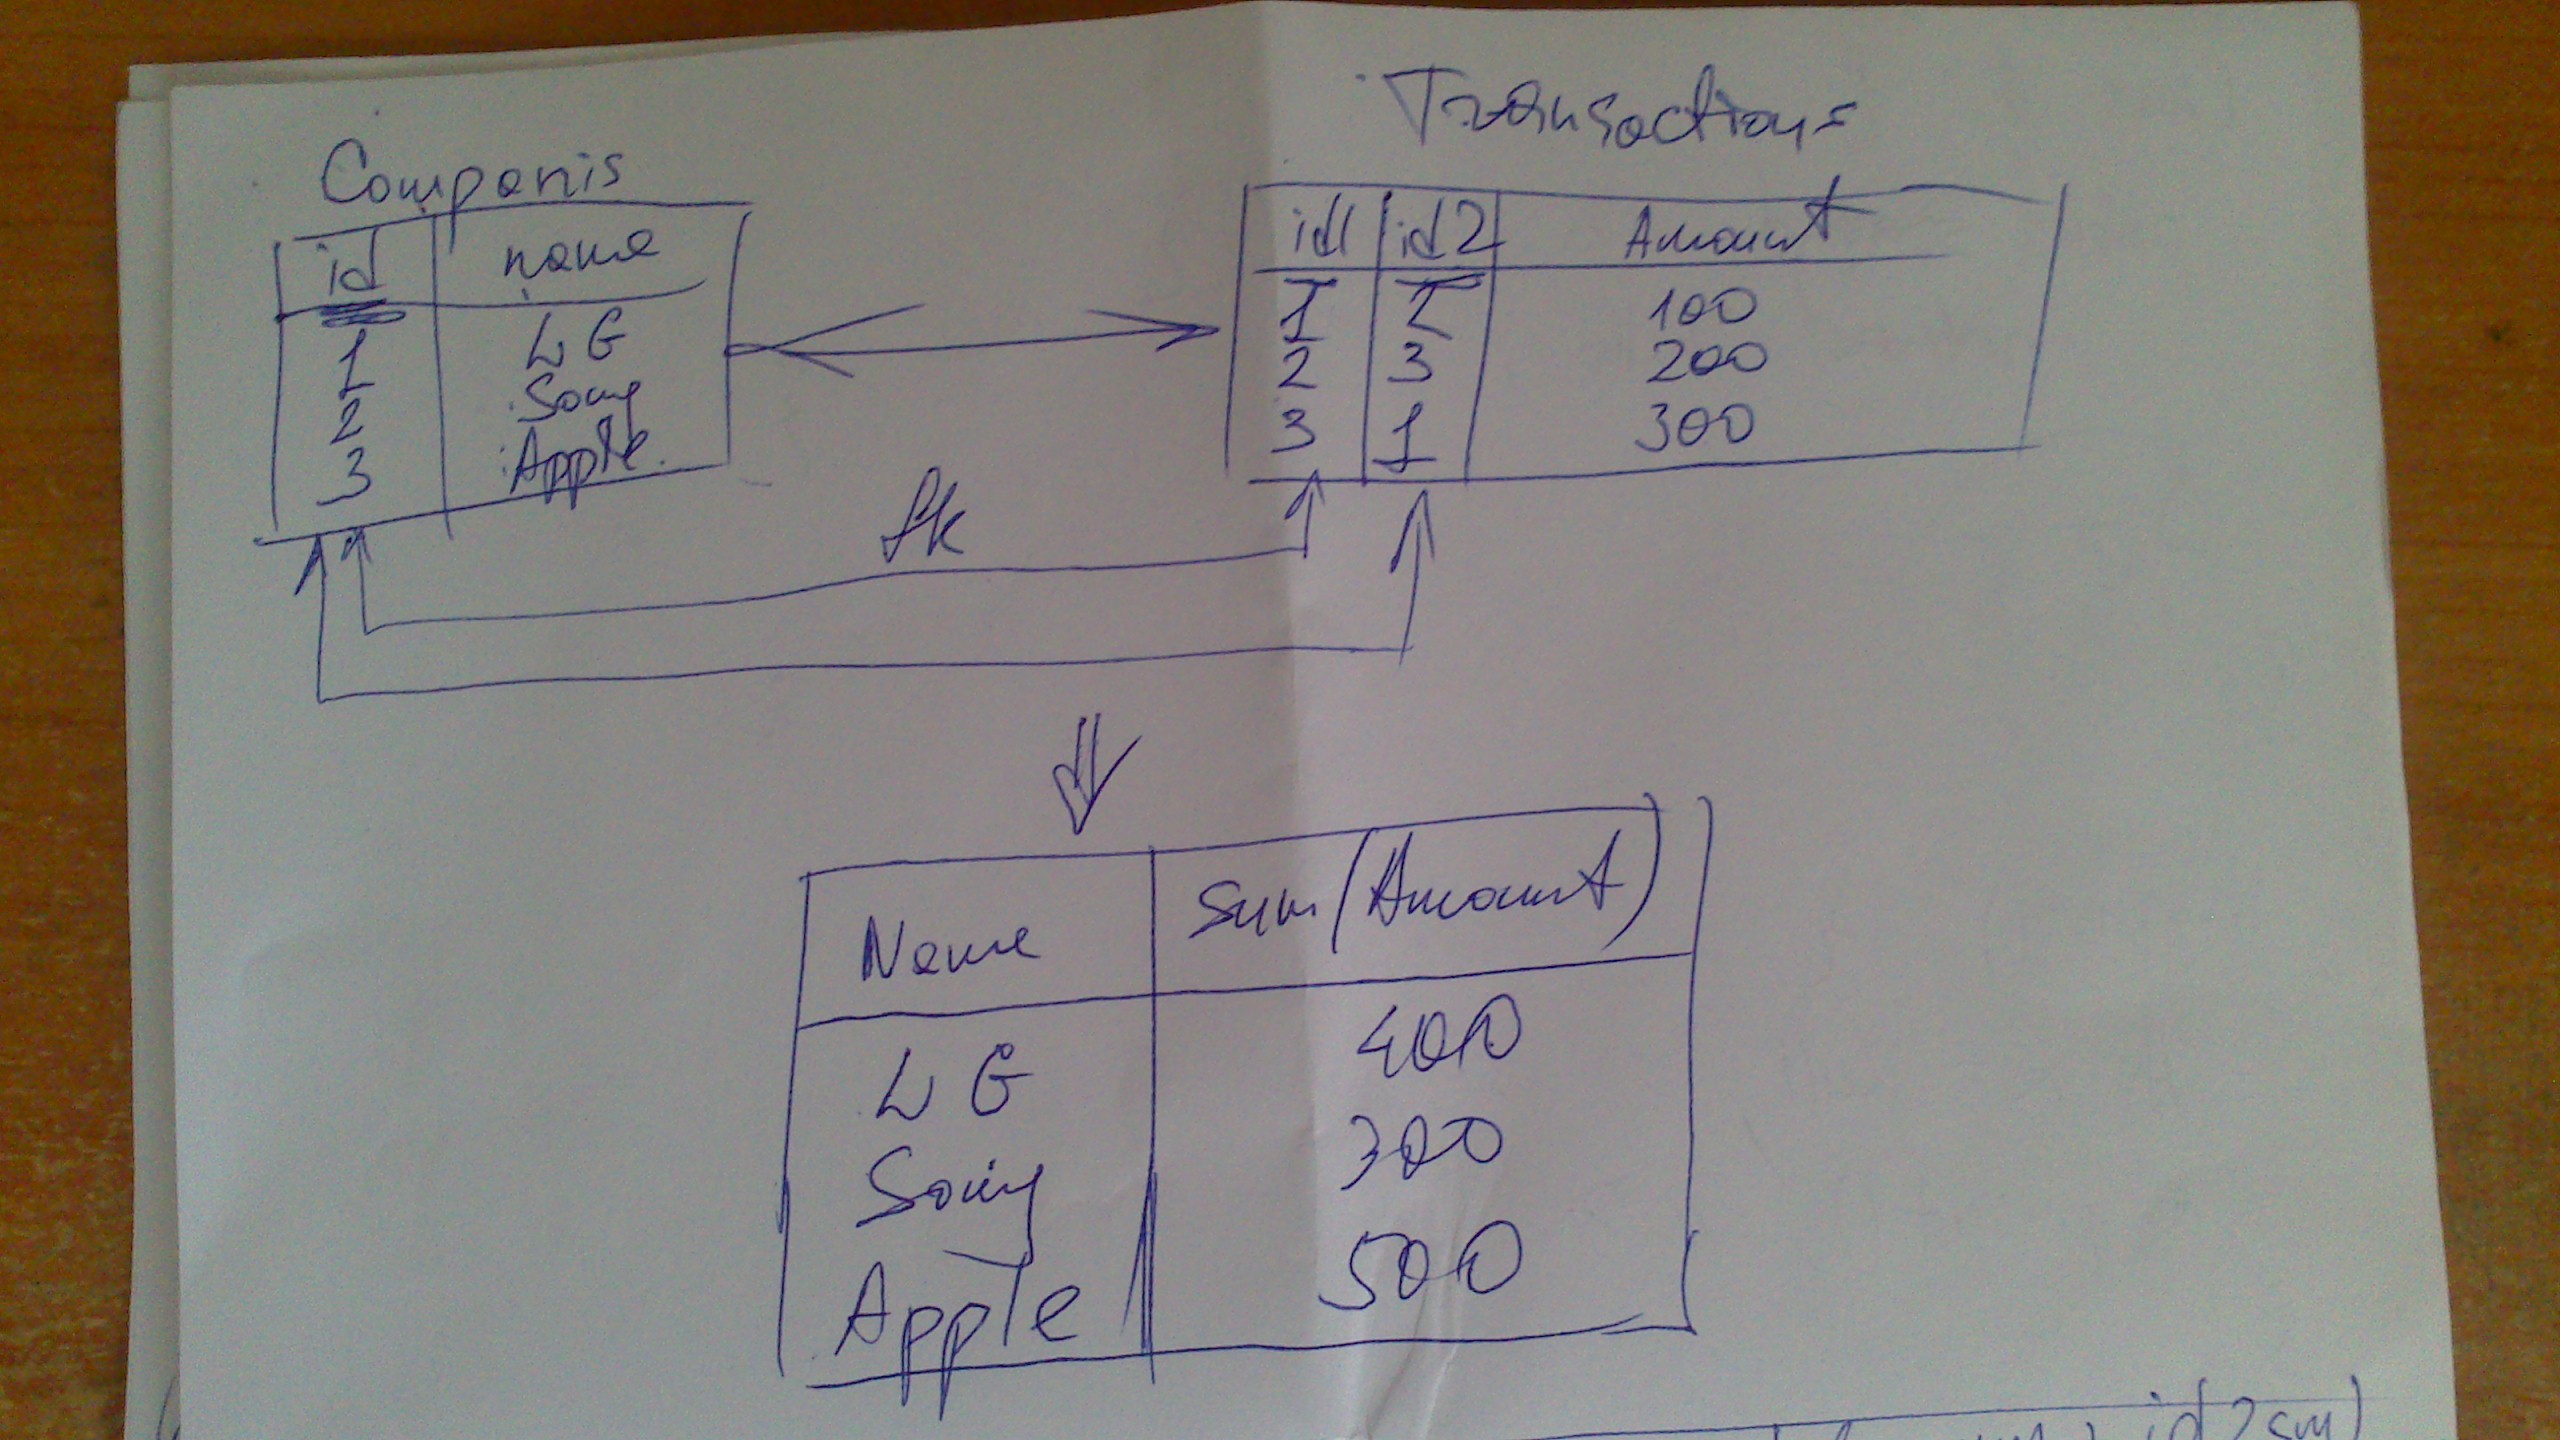 Companis
id name
1 LG
2 Sony
3 Apple
Transactions
id1 id2 Amount
1 2 100
2 3 200
3 1 300
fk
Name Sum(Amount)
LG 400
Sony 300
Apple 500
id2sum)